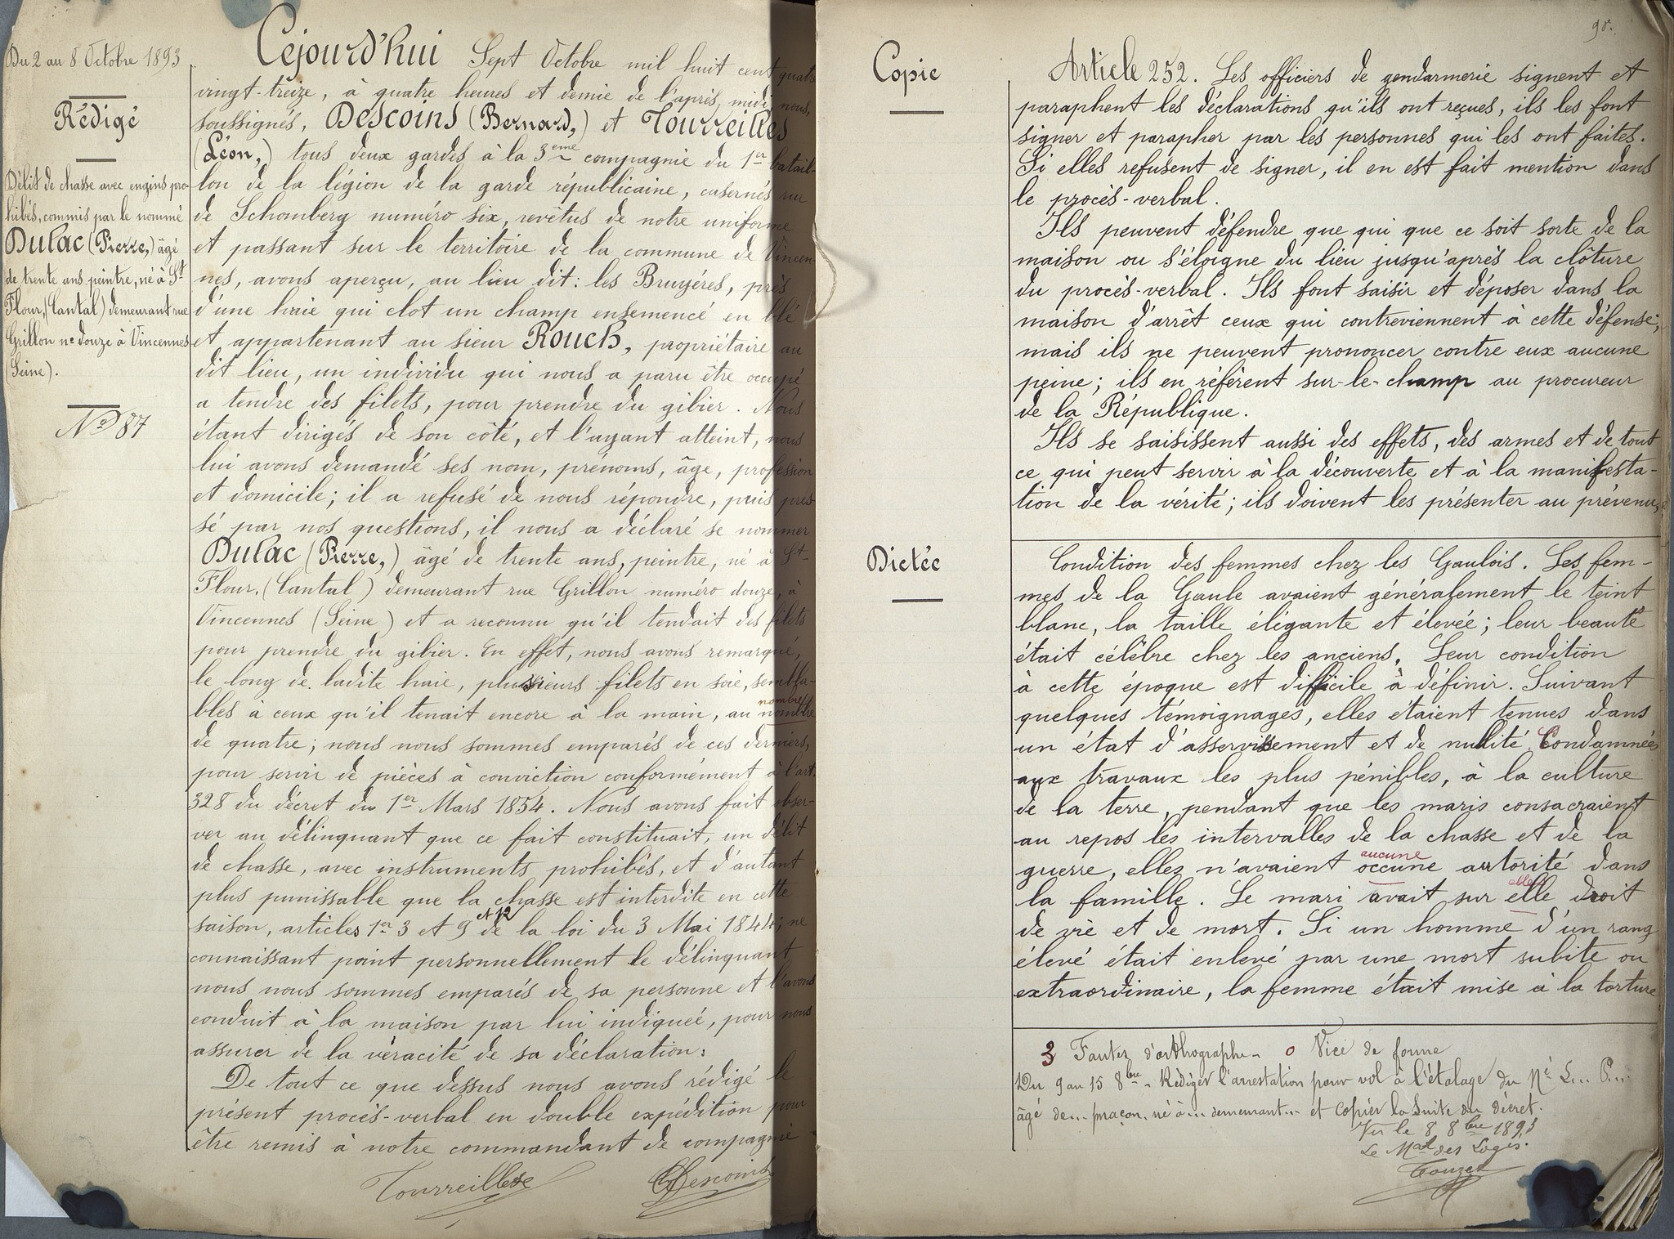 Du 2 au 8 Octobre 1893
Rédigé
Délit de chasse avec engins pro-
hibés, commis par le nommé
Dulac (Pierre,) âgé
de trente ans peintre, né à St
Flour, (Cantal) demeurant rue
Grillon no douze à Vincennes
Seine).
No 87
Cejourd'hui Sept Octobre mil huit cent quatre
vingt-treize, à quatre heures et demie de l'après midi, nous,
soussignés, Descoins (Bernard,) et Tourreilles
(Léon,) tous deux gardes à la 3eme compagnie du 1er batail-
lon de la légion de la garde républicaine, casernés rue
de Schomberg numéro six, revêtus de notre uniforme
et passant sur le territoire de la commune de Vincen-
nes, avons aperçu, au lieu dit: les Bruyéres, près
d'une haie qui clot un champ ensemencé en blé
et appartenant au sieur Rouch, propriétaire au
dit lieu, un individu qui nous a paru être occupé
a tendre des filets, pour prendre du gibier. Nous
étant dirigés de son côté, et l'ayant atteint, nous
lui avons demandé ses nom, prénoms, âge, profession
et domicile; il a refusé de nous répondre, puis pres-
sé par nos questions, il nous a déclaré se nommer
Dulac (Pierre,) âgé de trente ans, peintre, né à St-
Flour, (Cantal) demeurant rue Grillon numéro douze, à
Vincennes (Seine) et a reconnu qu'il tendait des filets
pour prendre du gibier. En effet, nous avons remarqué,
le long de ladite haie, plusieurs filets en soie, sembla-
bles à ceux qu'il tenait encore à la main, au nombre
de quatre; nous nous sommes emparés de ces derniers,
pour servir de pièces à conviction conformément à l'art.
328 du décret du 1er Mars 1854. Nous avons fait obser-
ver au délinquant que ce fait constituait, un délit
de chasse, avec instruments prohibés, et d'autant
plus punissable que la chasse est interdite en cette
saison, articles 1er 3 et 9 et 12 de la loi du 3 Mai 1844; ne
connaissant point personnellement le délinquant
nous nous sommes emparés de sa personne et l'avons
conduit à la maison par lui indiqueé, pour nous
assurer de la véracité de sa déclaration:
De tout ce que dessus nous avons rédigé le
présent procès-verbal en double expédition pour
être remis à notre commandant de compagnie
Tourreilles Descoins
98.
Copie
Article 252. Les officiers de gendarmerie signent et
paraphent les déclarations qu'ils ont reçues, ils les font
signer et parapher par les personnes qui les ont faites.
Si elles refusent de signer, il en est fait mention dans
le procès-verbal.
Ils peuvent défendre que qui que ce soit sorte de la
maison ou s'éloigne du lieu jusqu'après la clôture
du procès-verbal. Ils font saisir et déposer dans la
maison d'arrêt ceux qui contreviennent à cette défense;
mais ils ne peuvent prononcer contre eux aucune
peine; ils en réfèrent sur-le-champ au procureur
de la République.
Ils se saisissent aussi des effets, des armes et de tout
ce qui peut servir à la découverte et à la manifesta-
tion de la vérité; ils doivent les présenter au prévenu,
Dictée
Condition des femmes chez les Gaulois. Les fem-
mes de la Gaule avaient généralement le teint
blanc, la taille élégante et élevée; leur beauté
était célèbre chez les anciens. Leur condition
à cette époque est difficile à définir. Suivant
quelques témoignages, elles étaient tenues dans
un état d'asservissement et de nullité. Condamnées
aux travaux les plus pénibles, à la culture
de la terre, pendant que les maris consacraient
au repos les intervalles de la chasse et de la
guerre, elles n'avaient occune aucune autorité dans
la famille. Le mari avait sur elle elles droit
de vie et de mort. Si un homme d'un rang
élevé était enlevé par une mort subite ou
extraordinaire, la femme était mise à la torture
3 Fautes d'orthographe - 0 Vice de forme
Du 9 au 15 8bre - Rédiger l'arrestation pour vol à l'étalage du Né L... P...
âgé de... maçon, né à... demeurant... et copier la suite du décret.
Vu le 8 8bre 1893
Le Mal des Logis.